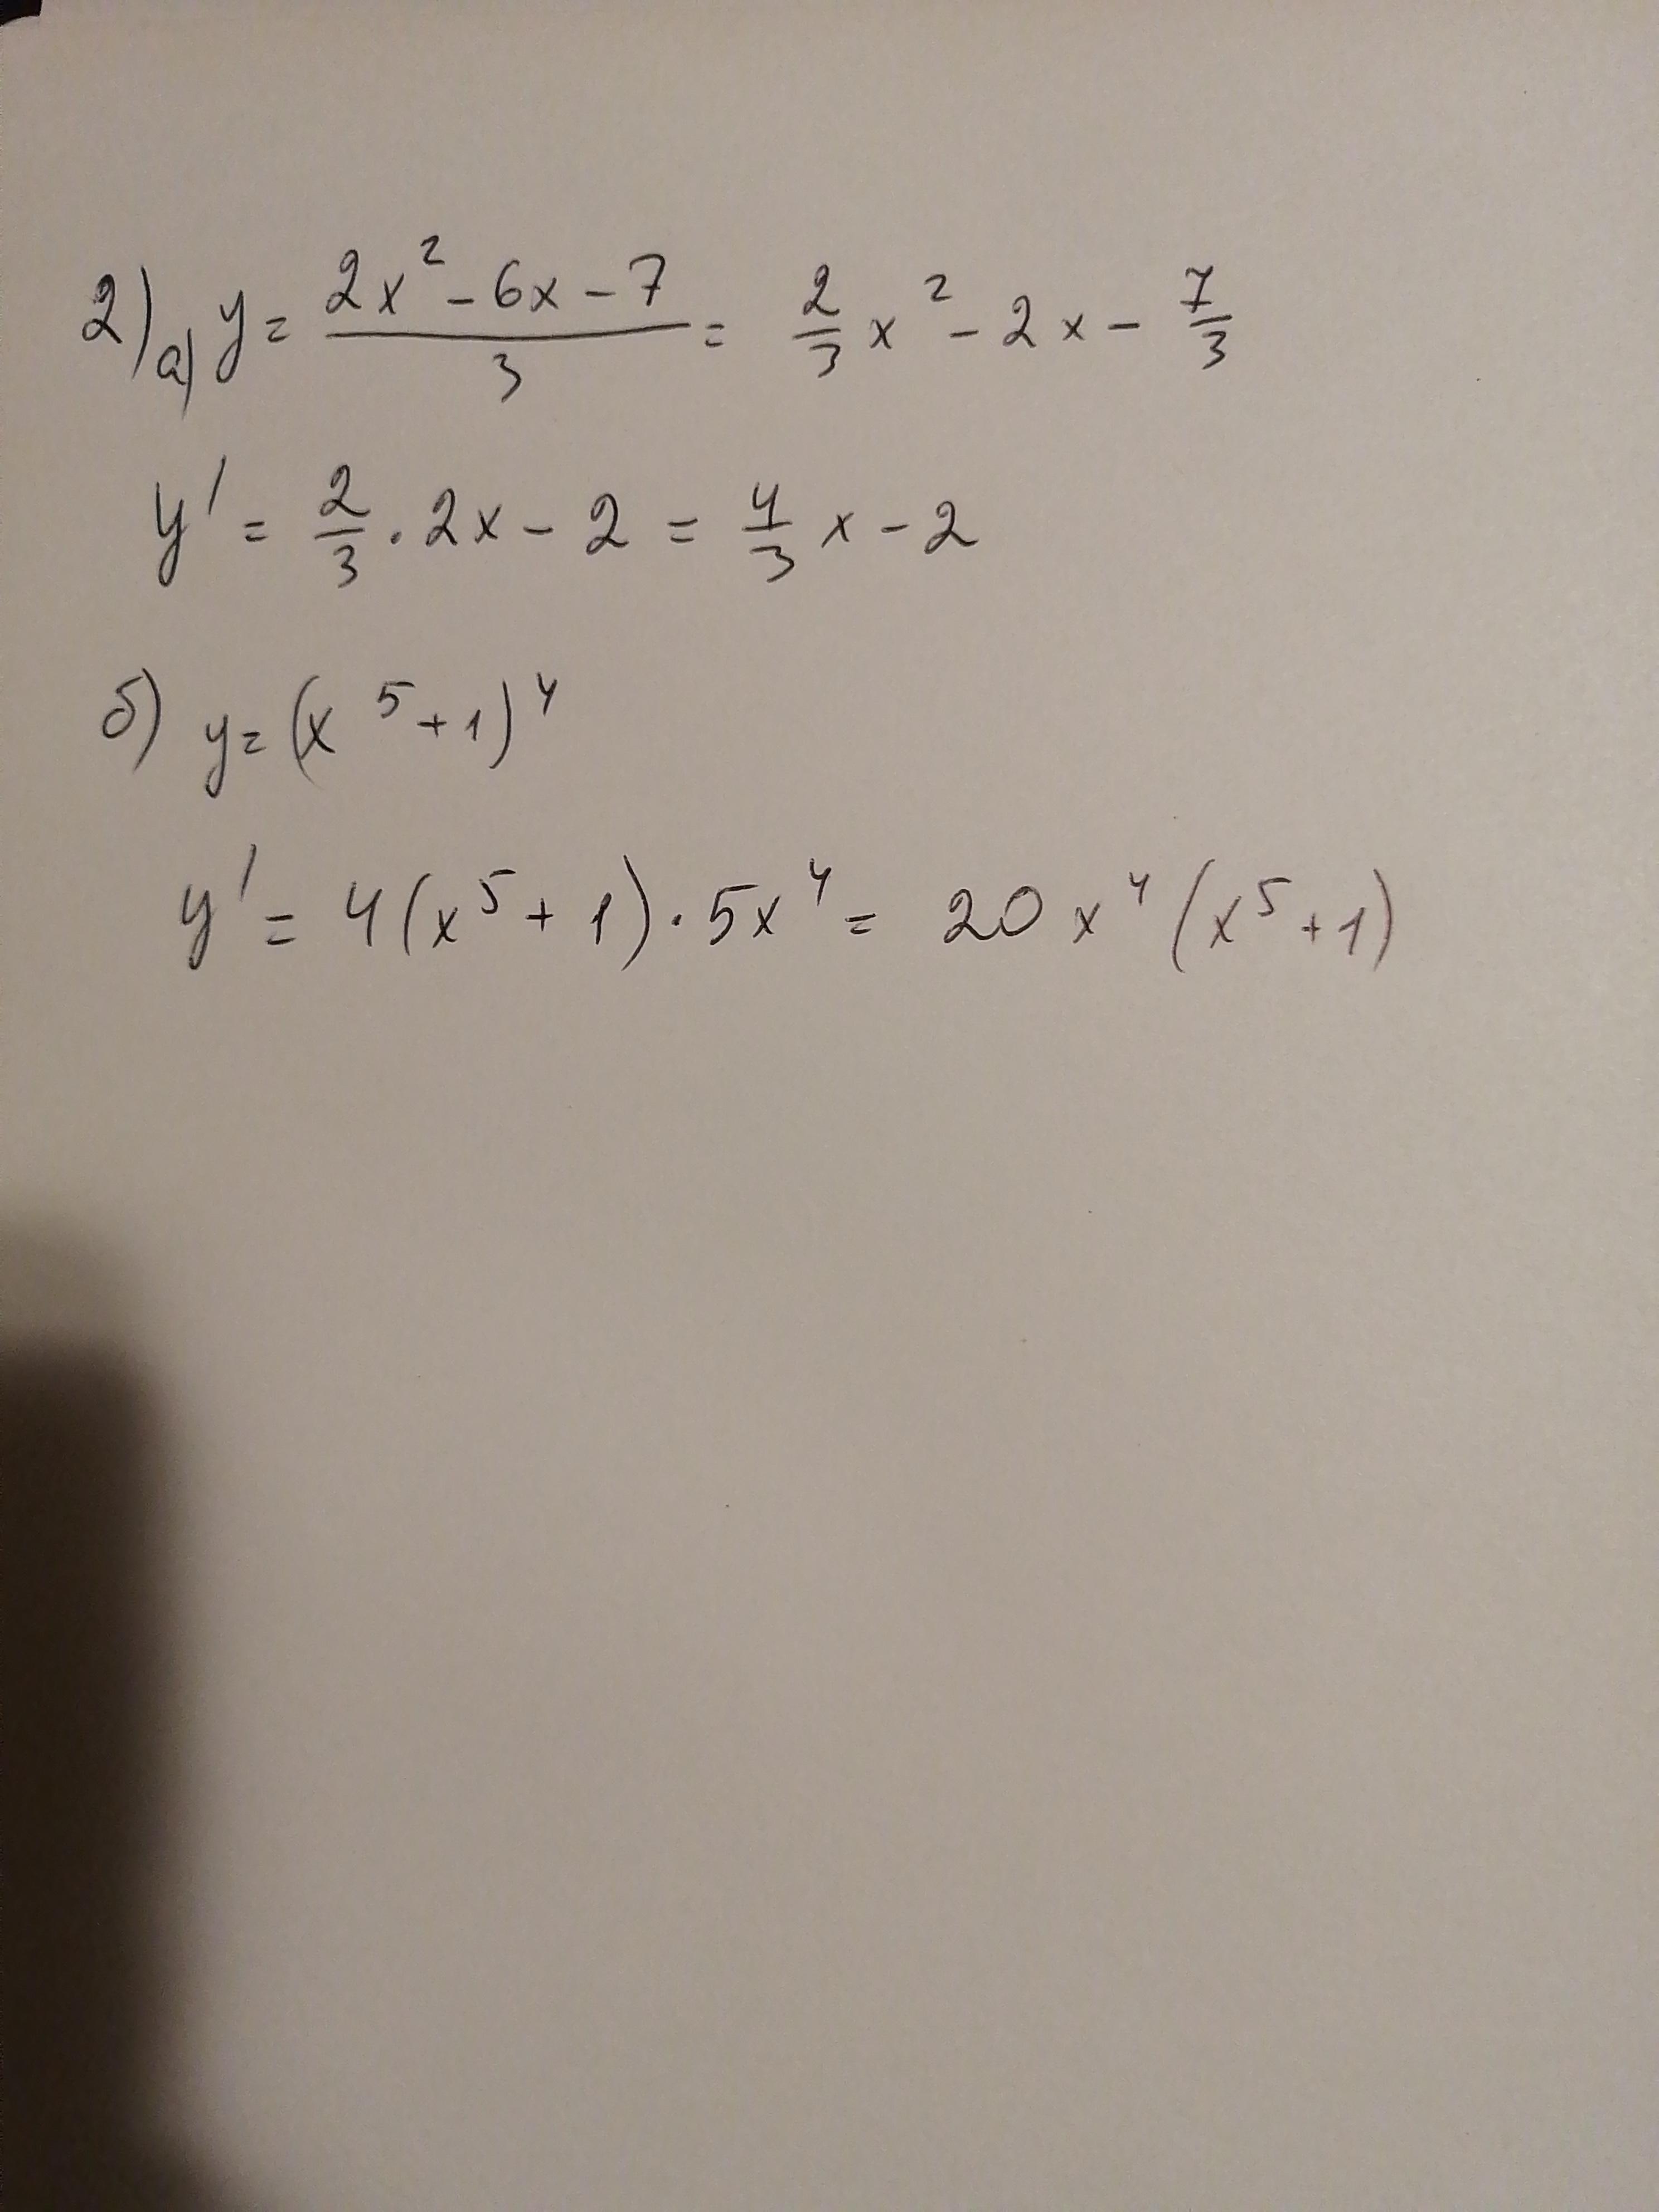 2) а) y = (2x² - 6x - 7)/3 = 2/3 x² - 2x - 7/3
y' = 2/3 · 2x - 2 = 4/3 x - 2
б) y = (x⁵ + 1)⁴
y' = 4(x⁵ + 1) · 5x⁴ = 20x⁴(x⁵ + 1)